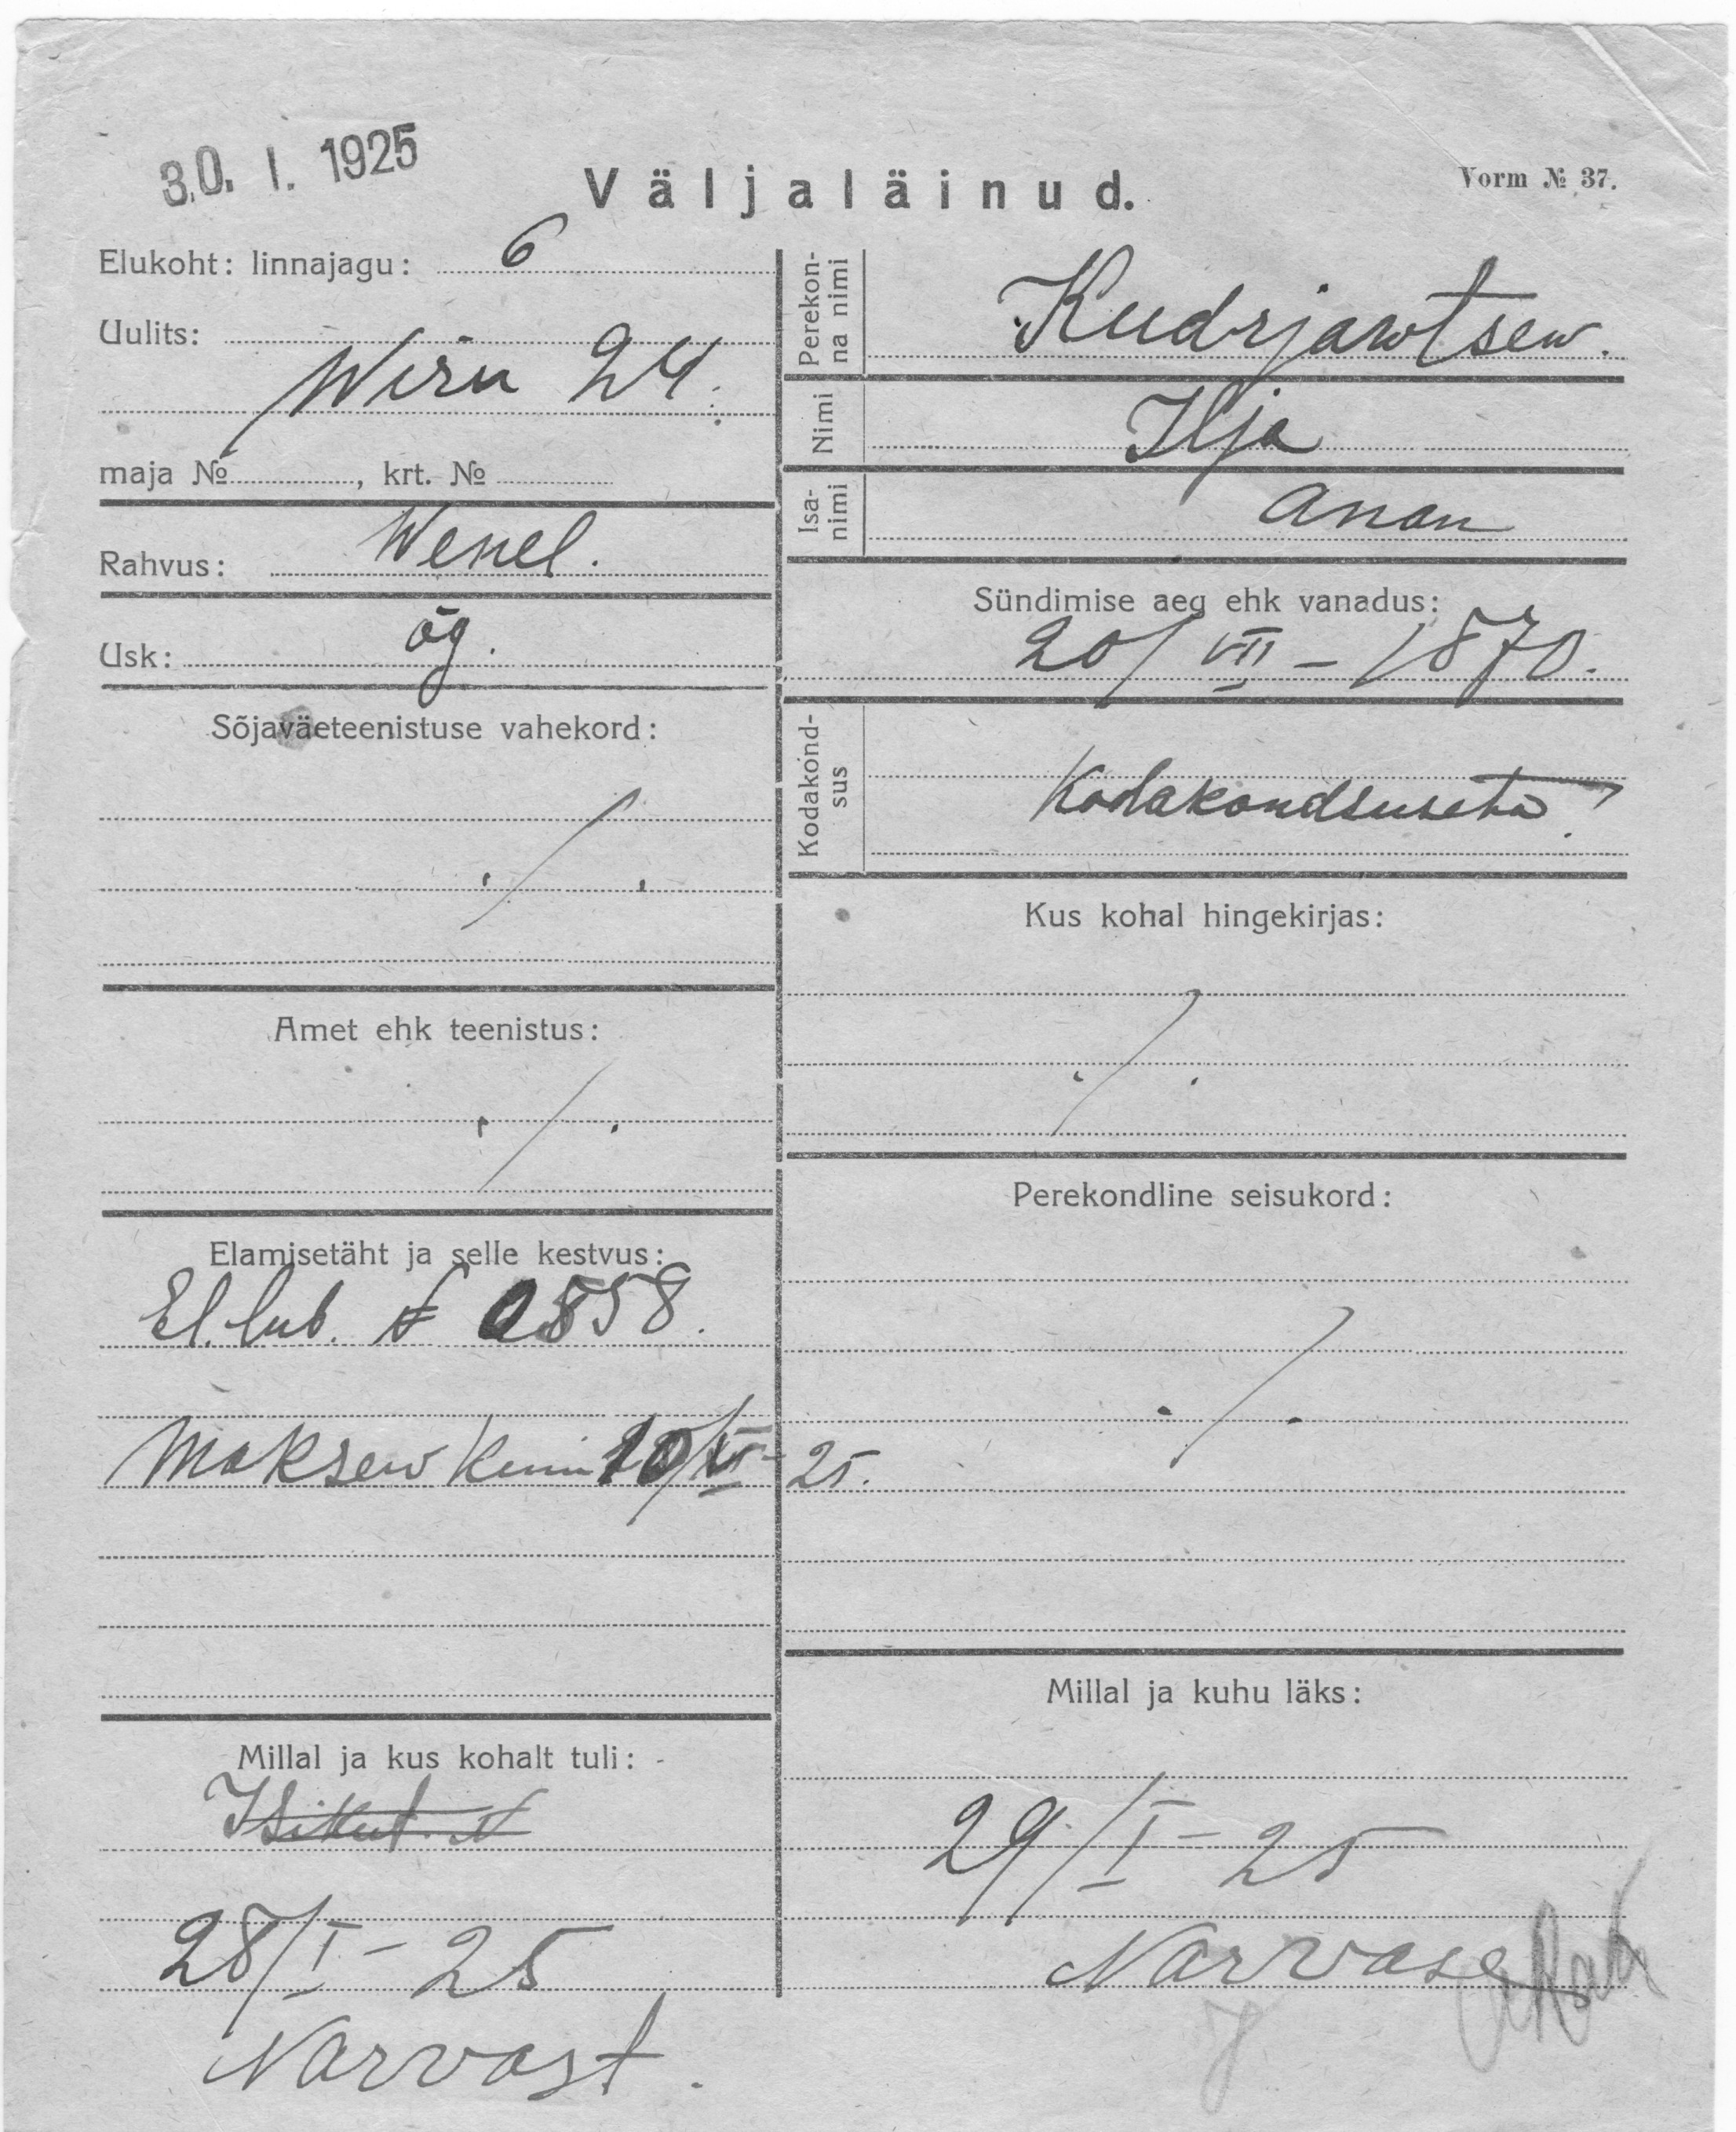 30. I. 1925
Väljaläinud.
Vorm № 37.
Elukoht: linnajagu: 6
Uulits:
Wiru 24.
maja № , krt. №
Rahvus: Wenel.
Usk: õg.
Sõjaväeteenistuse vahekord:
./.
Amet ehk teenistus:
./.
Elamisetäht ja selle kestvus:
El. lub. № 0858.
Maksew kuni 10/VI-25.
Millal ja kus kohalt tuli:
Isikut. №
28/I-25
Narvast.
Perekon-
na nimi
Kudrjawtsew.
Nimi
Ilja
Isa-
nimi
Anan
Sündimise aeg ehk vanadus:
20/VII-1870.
Kodakond-
sus
Kodakondsuseta.
Kus kohal hingekirjas:
./.
Perekondline seisukord:
./.
Millal ja kuhu läks:
29/I-25
Narvasse